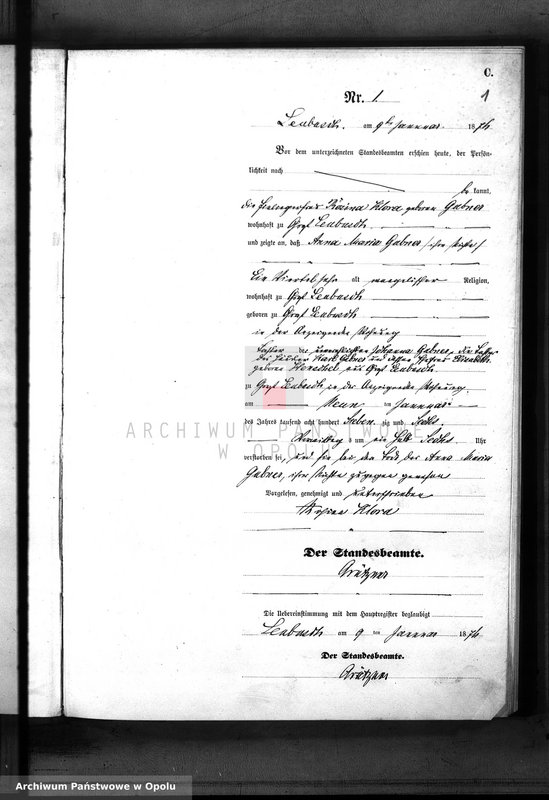 C.
1
Nr. 1.
Leubusch. am 9ten Januar 1876
Vor dem unterzeichneten Standesbeamten erschien heute, der Persön-
lichkeit nach
be kannt,
die Rosina Klora geboren Gabner
wohnhaft zu Groß Leubusch
und zeigte an, daß Anna Maria Gabner, ihre Nichte,
Ein Viertel Jahr alt evangelischer Religion,
wohnhaft zu Groß Leubusch
geboren zu Groß Leubusch
in der Wohnung
Tochter der unverehelichten Johanna Gabner, die Tochter
des Karl Gabner und dessen Ehefrau Elisabeth
geborne Hentschel aus Groß Leubusch
zu Groß Leubusch in der Wohnung
am Neun ten Januar
des Jahres tausend acht hundert Sieben zig und Sechs
Vormittag s um ein halb Sechs Uhr
verstorben sei, und sie bei dem Tode der Anna Maria
Gabner, ihrer Nichte zugegen gewesen
Vorgelesen, genehmigt und unterschrieben
Rosina Klora
Der Standesbeamte.
Grätzner
Die Uebereinstimmung mit dem Hauptregister beglaubigt
Leubusch am 9 ten Januar 1876
Der Standesbeamte.
Grätzner
ARCHIWUM PAŃSTWOWE
W OPOLU
Archiwum Państwowe w Opolu